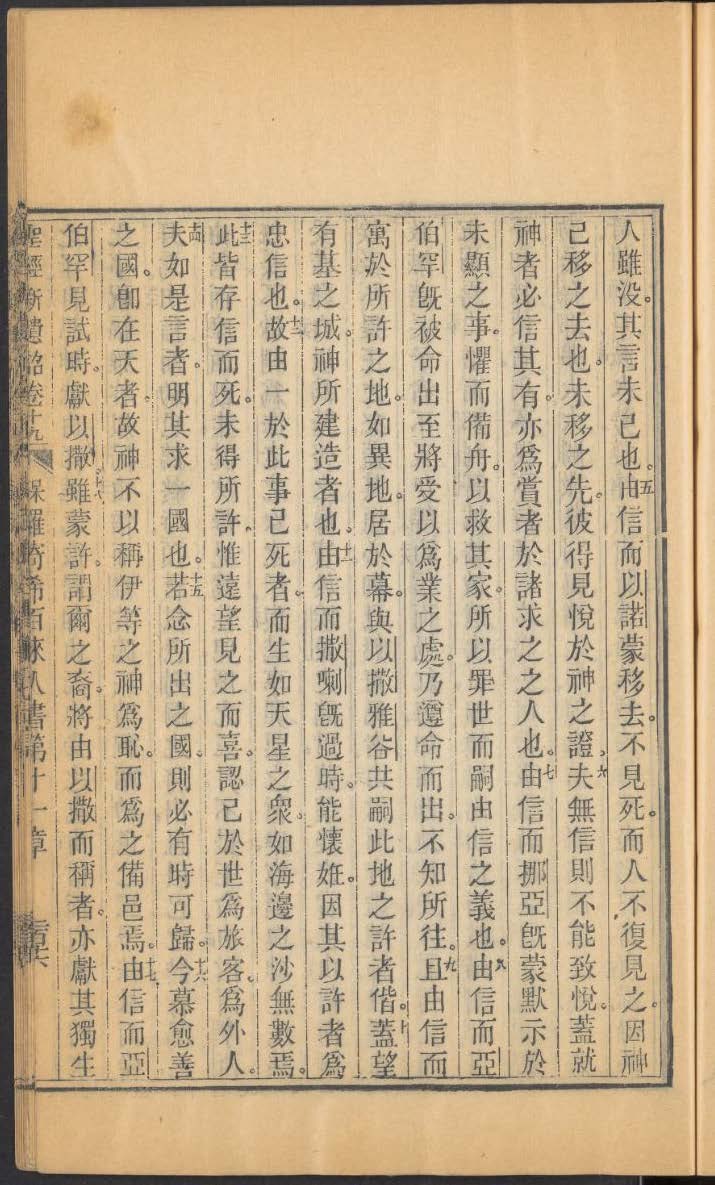 人雖没。其言未已也。五由信而以諾蒙移去。不見死。而人不復見之。因神
已移之去也。未移之先。彼得見悅於神之證。六夫無信則不能致悅。蓋就
神者必信其有。亦爲賞者於諸求之之人也。七由信而挪亞旣蒙默示於
未顯之事。懼而備舟。以救其家。所以罪世而嗣由信之義也。八由信而亞
伯罕旣被命出至將受以爲業之處。乃遵命而出。不知所往。九且由信而
寓於所許之地。如異地。居於幕。與以撒雅谷共嗣此地之許者偕。十蓋望
有基之城。神所建造者也。十一由信而撒喇旣過時。能懷姙。因其以許者爲
忠信也。十二故由一於此事已死者。而生如天星之衆。如海邊之沙無數焉。
十三此皆存信而死。未得所許。惟遠望見之而喜。認己於世爲旅客。爲外人。
十四夫如是言者。明其求一國也。十五若念所出之國。則必有時可歸。十六今慕愈善
之國。卽在天者。故神不以稱伊等之神爲恥。而爲之備邑焉。十七由信而亞
伯罕見試時。獻以撒。十八雖蒙許。謂爾之裔。將由以撒而稱者。亦獻其獨生
聖經新遺詔卷十九 保羅寄希百來人書第十一章